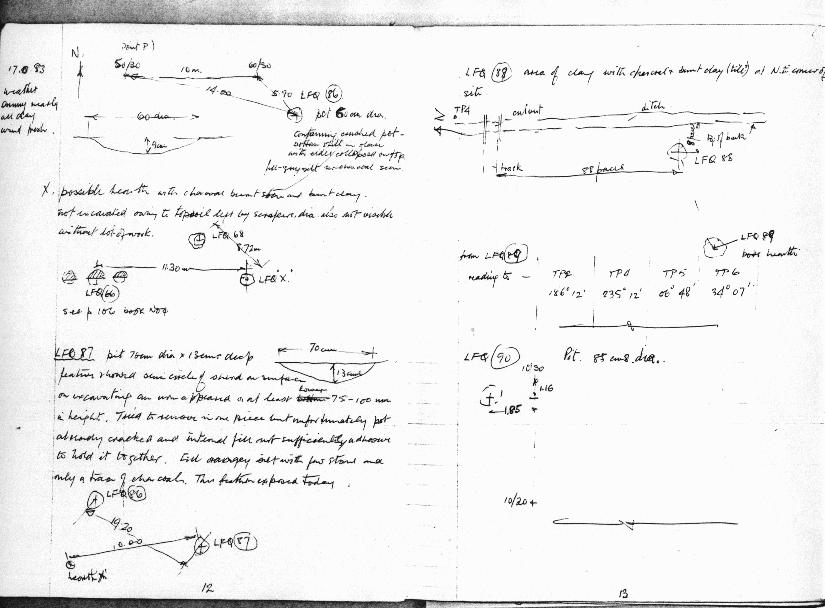 17.8 83
weather
sunny nearly
all day
wind fresh.
N.
Point P1
50/30
60/30
10m.
14.00
5.70
LFQ 86
60 dia
9cm
pot 60cm dia.
containing crushed pot -
bottom still in situ
with sides collapsed on top
X. possible hearth with charcoal burnt stone and burnt clay.
not excavated owing to topsoil left by scraper, dia. also not visible
without lot of work.
LFQ 68
8.72m
11.30m
LFQ 'X'.
LFQ 66
see p 106 BOOK NO 4
LFQ 87 pit 70cm dia x 13cms deep
70cm
13cms
feature showed semi circle of sherd on surface
on excavating an urn appeared at at least 75-100 mm
in height. Tried to remove in one piece but unfortunately pot
already cracked and internal fill not sufficiently adhesive
to hold it together. Fill orangey silt with few stone and
only a trace of charcoal. This feature exposed today.
LFQ 86
19.20
10.00
LFQ 87
hearth 'X'
12
LFQ 88 area of clay with charcoal + burnt clay (tile) at N.E corner of
site
N
TP4
culvert
ditch
8 paces
LFQ 88
track
88 paces
LFQ 89
from LFQ 89
reading to -
TP2
TP4
TP5
TP6
186° 12'
235° 12'
06° 48'
34° 07'
LFQ 90
Pit. 85 cms dia.
10/30
1.16
1.85
10/20 +
13